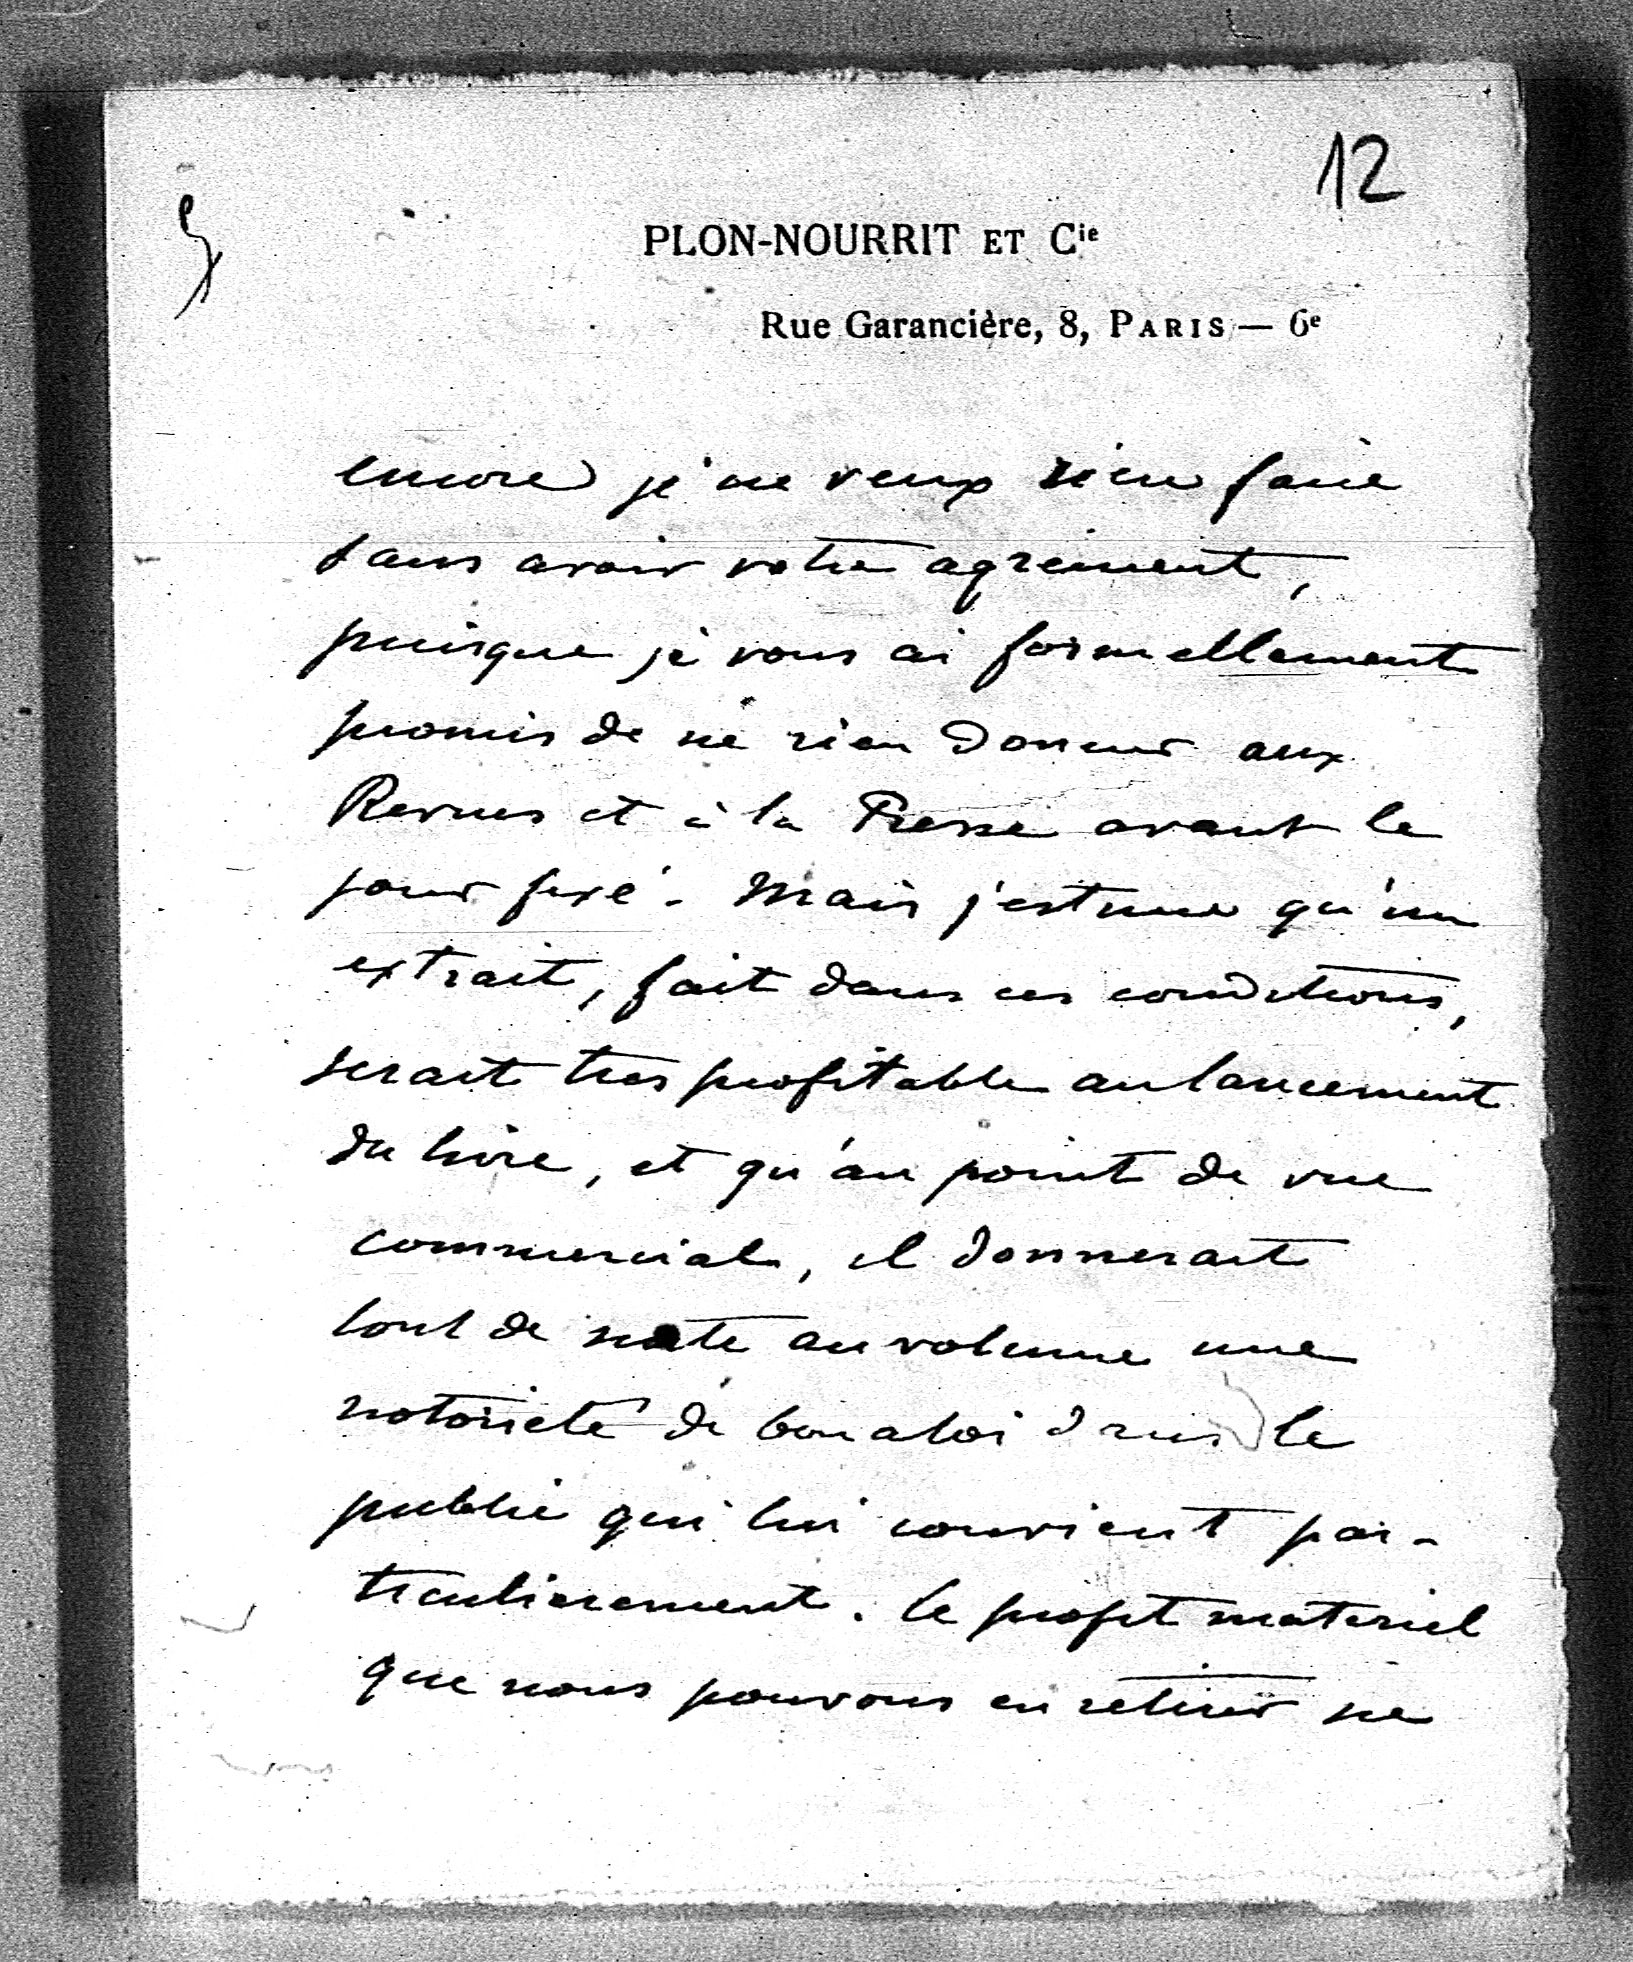 12
PLON-NOURRIT ET Cie
Rue Garancière, 8, PARIS — 6e
encore je ne veux rien faire
sans avoir votre agrément,
puisque je vous ai formellement
promis de ne rien donner aux
Revues et à la Presse avant le
jour fixé. Mais j'estime qu'un
extrait, fait dans ces conditions,
serait très profitable au lancement
du livre, et qu'au point de vue
commercial, il donnerait
tout de suite au volume une
notoriété de bon aloi dans le
public qui lui convient par-
ticulièrement. Le profit matériel
que nous pouvons en retirer ne